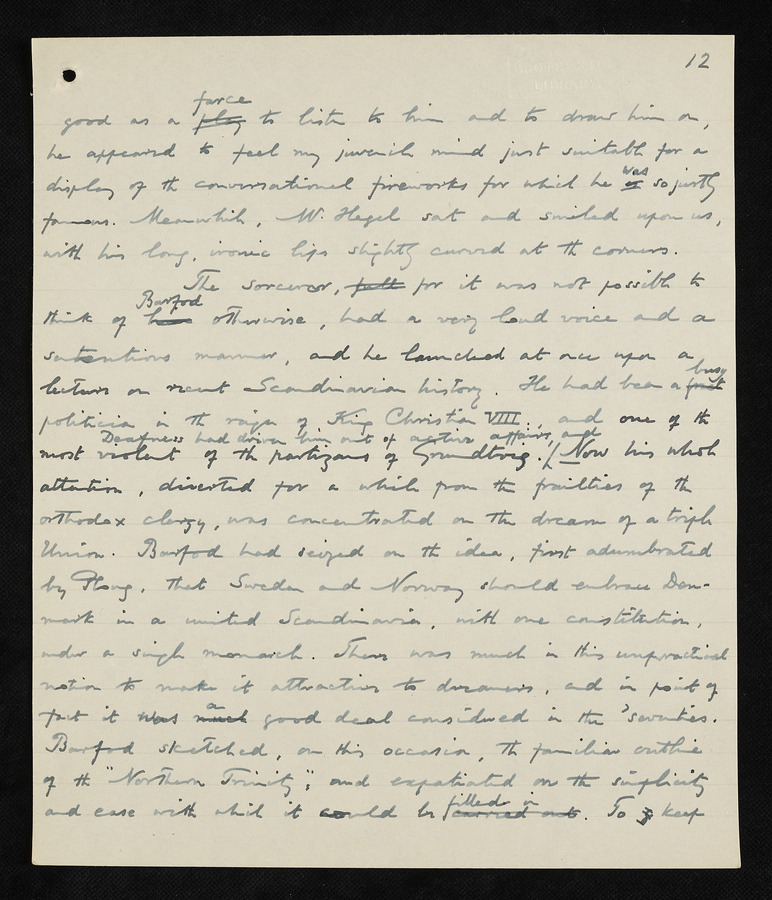 12
farce
good as a play to listen to him and to draw him on,
he appeared to feel my juvenile mind just suitable for a
was
display of the conversational fireworks for which he is so justly
famous. Meanwhile, Mr. Hegel sat and smiled upon us,
with his long, ironic lips slightly curved at the corners.
The sorcerer, felt for it was not possible to
Barfod
think of him otherwise, had a very loud voice and a
sententious manner, and he launched at once upon a
busy
lecture on recent Scandinavian history. He had been a
politician in the reign of King Christian VIII., and one of the
Deafness had driven him out of active affairs, and
most violent of the partizans of Grundtvig. Now his whole
attention, diverted for a while from the frailties of the
orthodox clergy, was concentrated on the dream of a triple
Union. Barfod had seized on the idea, first adumbrated
by Ploug, that Sweden and Norway should embrace Den-
mark in a united Scandinavia, with one constitution,
under a single monarch. There was much in this unpractical
notion to make it attractive to dreamers, and in point of
a
fact it was much good deal considered in the 'seventies.
Barfod sketched, on this occasion, the familiar outline
of the "Northern Trinity"; and expatiated on the simplicity
filled in
and ease with which it could be carried out. To keep